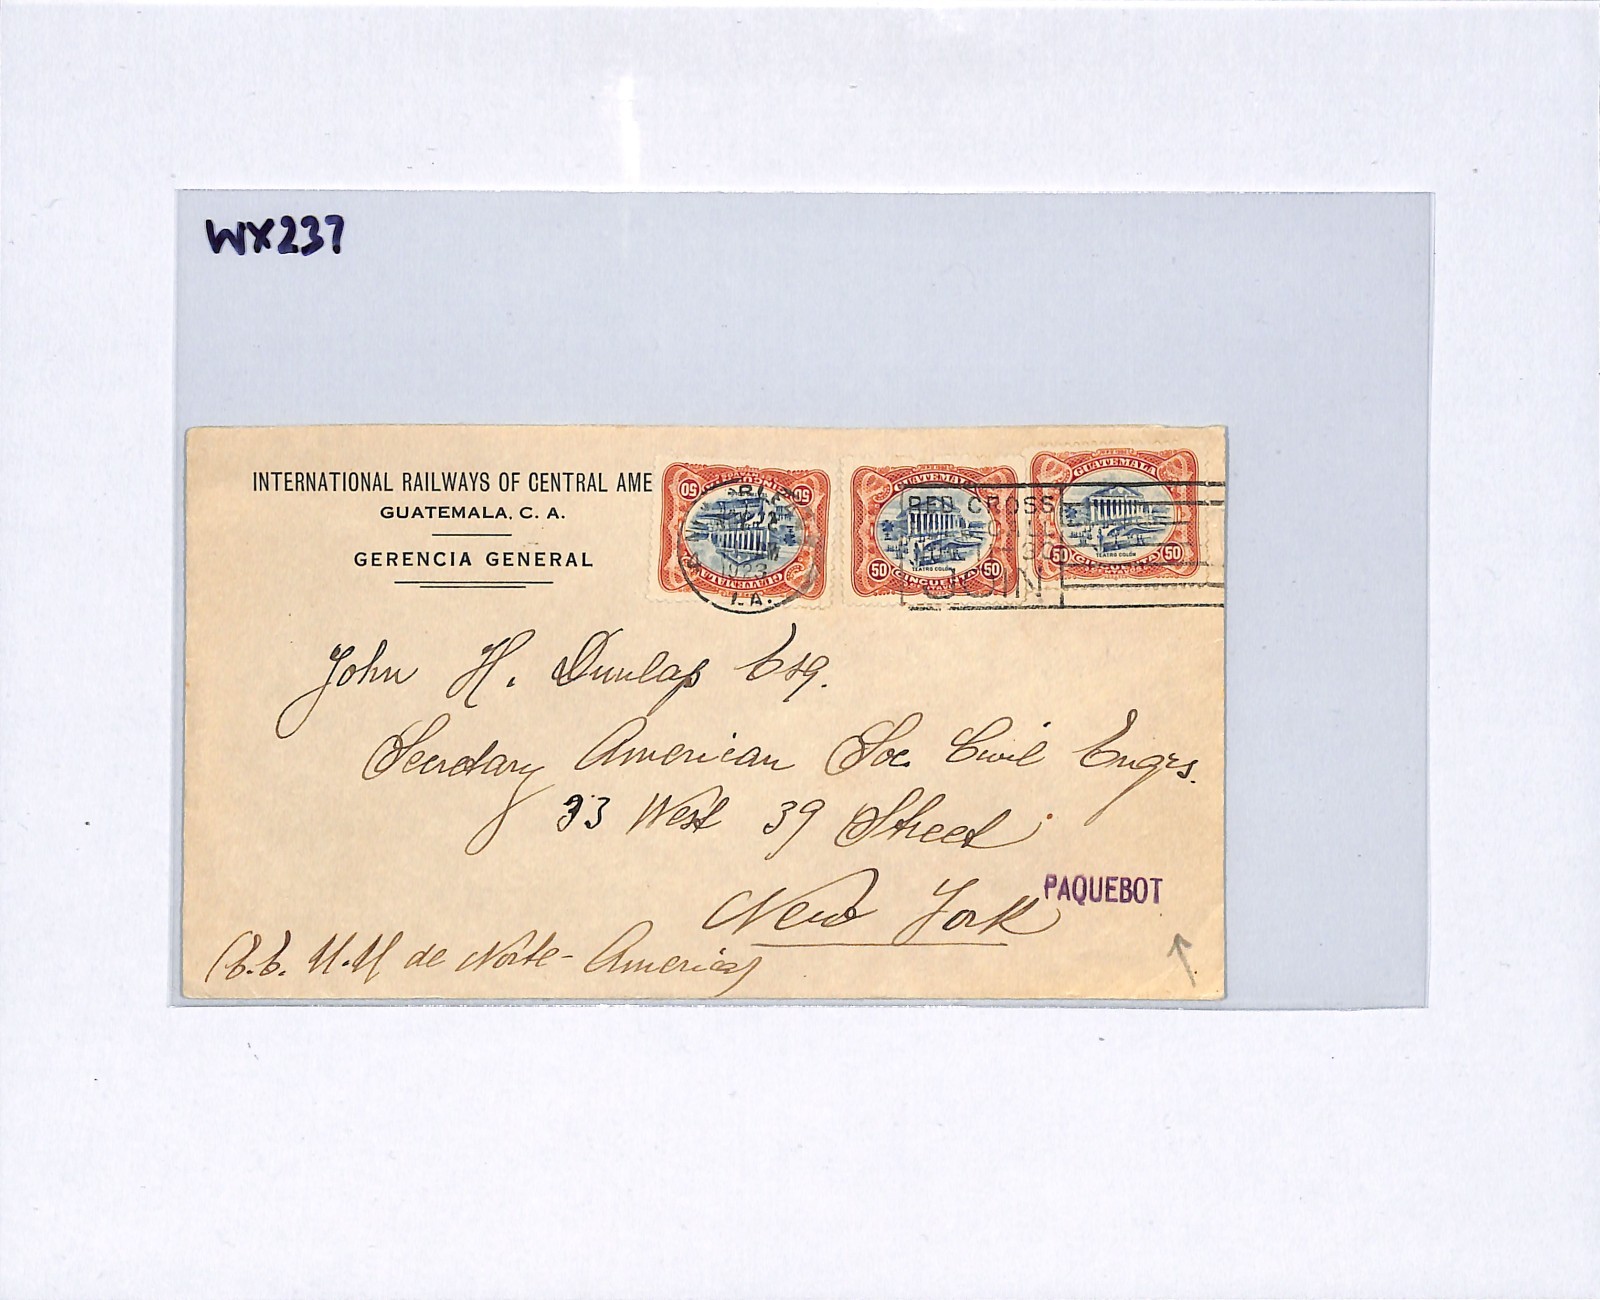 WX237
INTERNATIONAL RAILWAYS OF CENTRAL AME
GUATEMALA, C. A.
GERENCIA GENERAL
50 50
GUATEMALA
1923
LA.
GUATEMALA
TEATRO COLÓN
50 CINCUENTA 50
RED CROSS
JOIN!
GUATEMALA
TEATRO COLÓN
50 CINCUENTA 50
John H. Dunlap Esq.
Secretary American Soc. Civil Engrs.
33 West 39 Street
New York
PAQUEBOT
E.E. U.U de Norte-America